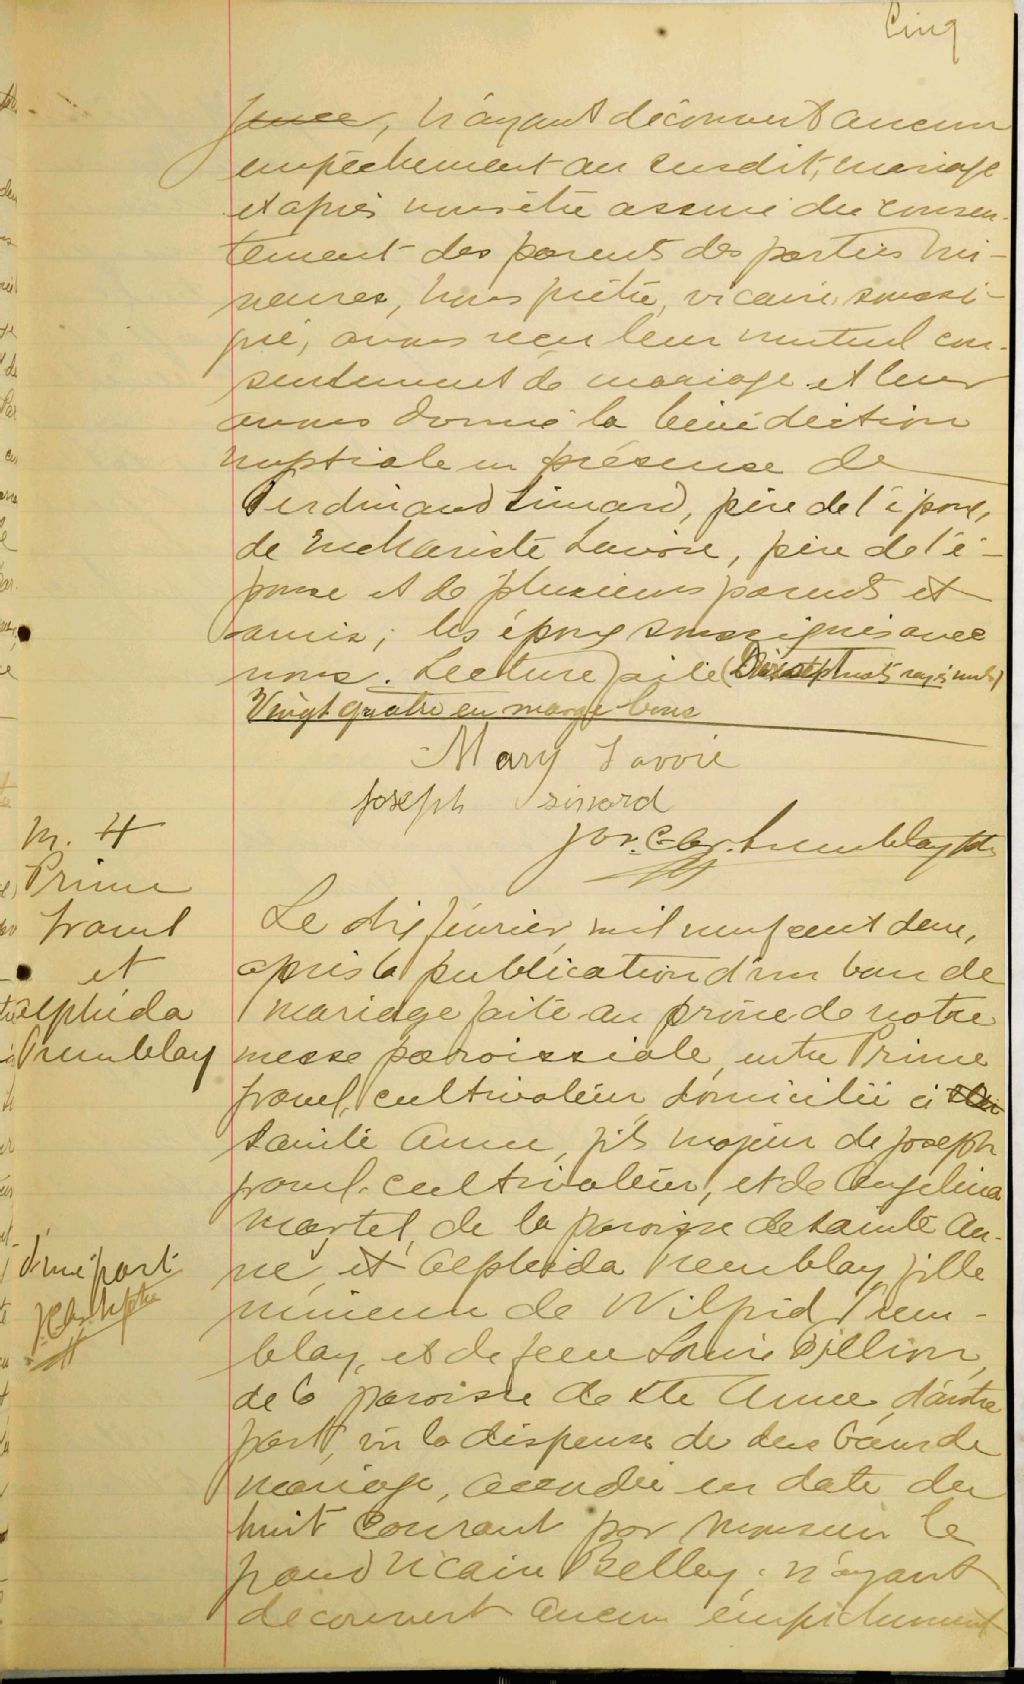 Cinq
n'ayant découvert aucun
empêchement au susdit, mariage
et après nous être assuré du consen-
tement des parents des parties mi-
neures, nous prêtre, vicaire soussi-
gné, avons reçu leur mutuel con-
sentement de mariage et leur
avons donné la bénédiction
nuptiale en présence de
Ferdinand Simard, père de l'époux,
de Euchariste Lavoie, père de l'é-
pouse et de plusieurs parents et
amis; les époux soussignés avec
nous. Lecture faite ( mots rayés nuls)
Vingt quatre en marge bons
Mary Lavoie
Joseph Simard
Jos. C. Tremblay ptre
M. 4
Prime
et
Alphéda
Tremblay
Le dix février, mil neuf cent deux,
après la publication d'un ban de
mariage faite au prône de notre
messe paroissiale, entre Prime
cultivateur domicilié à
Sainte Anne, fils majeur de Joseph
cultivateur, et de Angelina
Martel, de la paroisse de Sainte An-
ne, et Alphéda Tremblay, fille
d'une part
mineure de Wilfrid Trem-
blay, et de feue Louise
de la paroisse de Ste Anne, d'autre
part, vu la dispense de deux bans de
mariage, accordée en date du
huit courant par monsieur le
grand vicaire Belley; n'ayant
découvert aucun empêchement